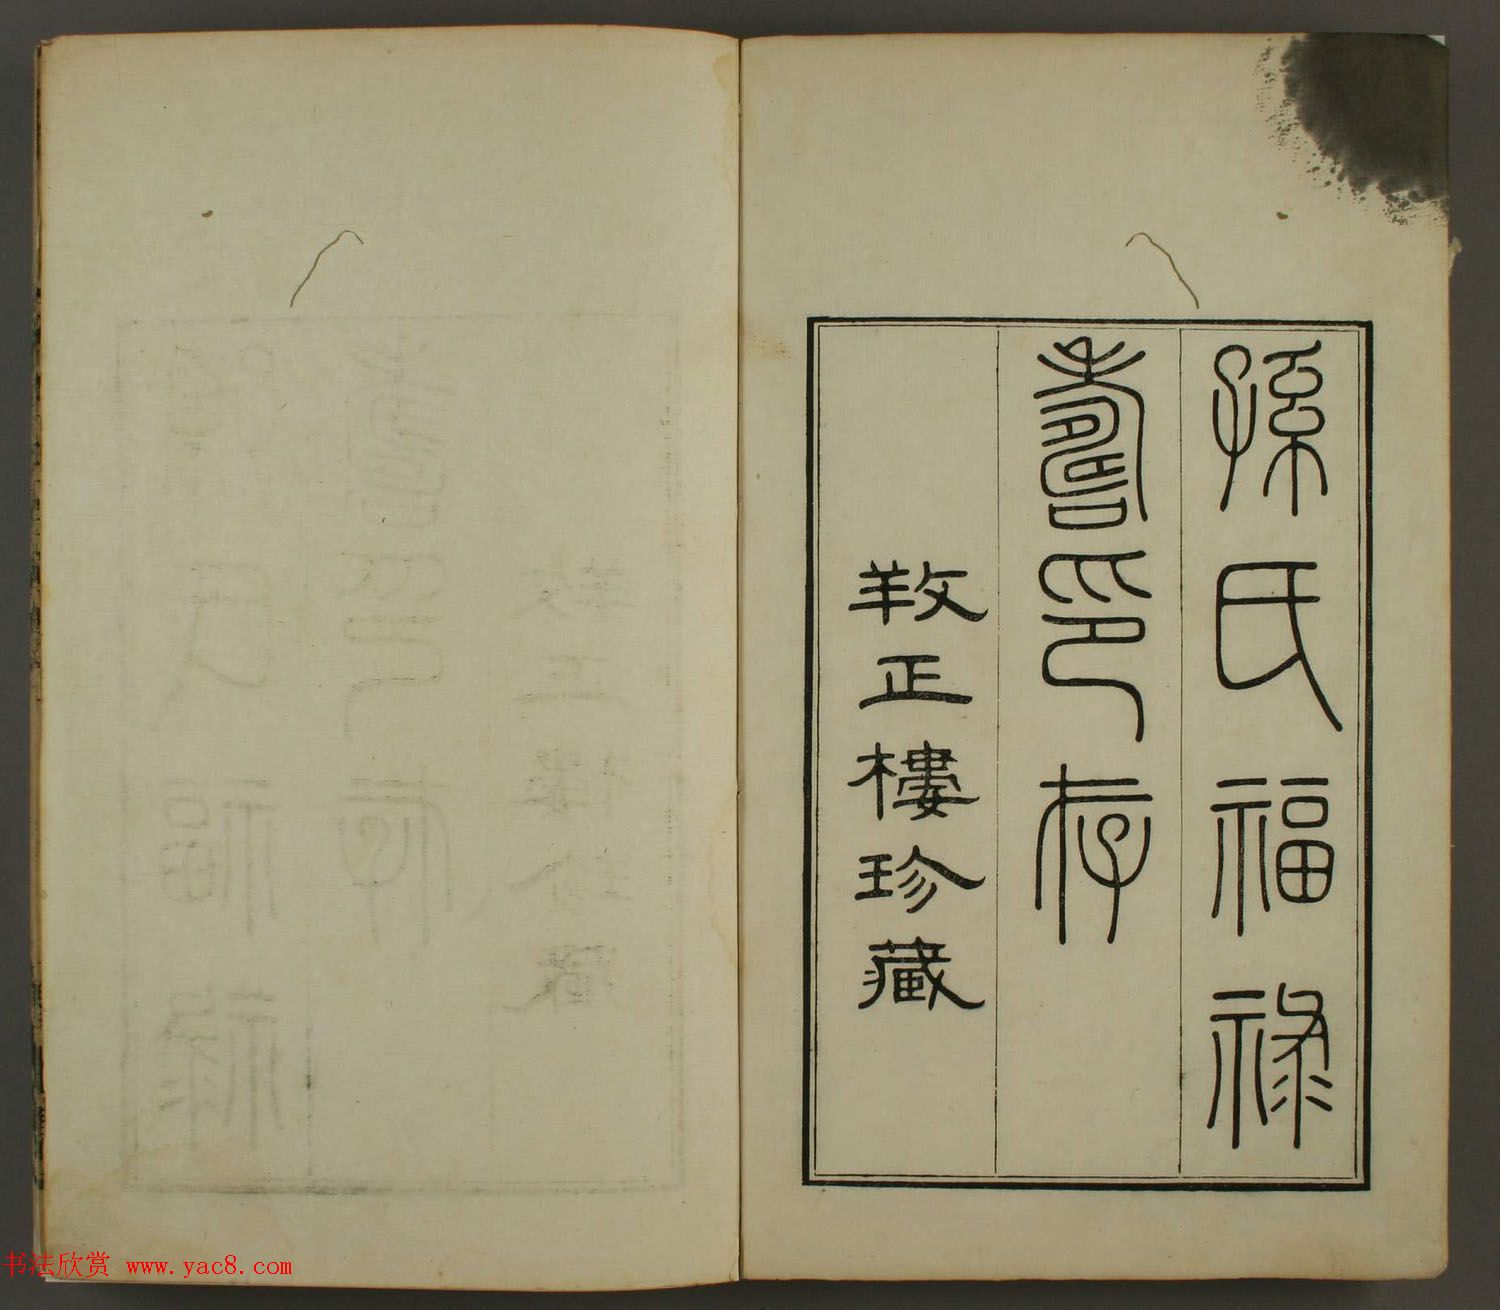 孫氏福祿
壽印存
敩正樓珍藏
书法欣赏 www.yac8.com